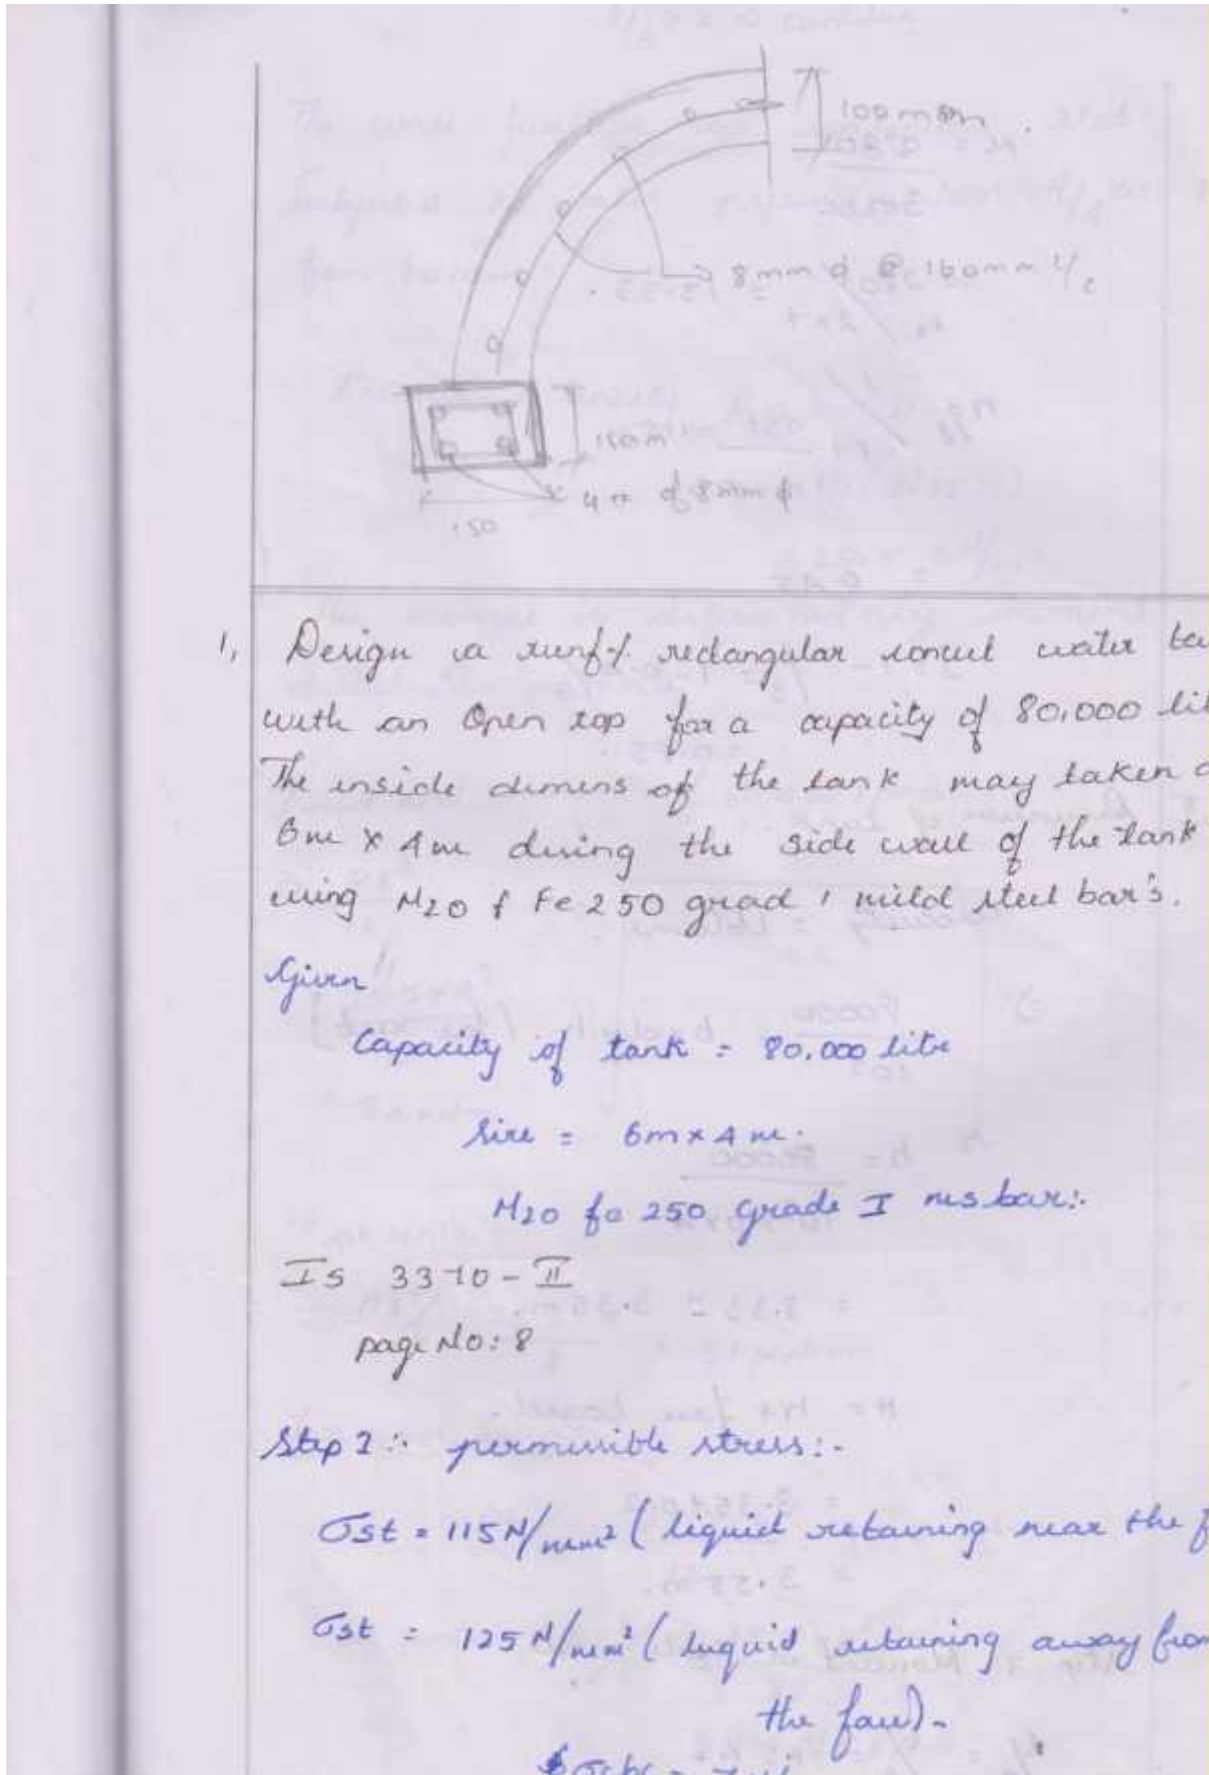 100mm.
8mm ϕ @ 160mm c/c
150
4 # of 8mm ϕ
150
1, Design a reinf-/. redangular concret water ta
with an Open top for a capacity of 80,000 lit
The inside dimens of the tank may taken a
6m x 4m desing the side wall of the tank
using M20 f Fe 250 grad 1 mild steel bar's.
Given
Capacity of tank = 80,000 litre
Size = 6m x 4m.
M20 fe 250 grade I ms bar:-
IS 3370-II
page No: 8
Step 2:- permissible stress:-
σst = 115N/mm² ( liquid retaining near the f
σst = 125N/mm² ( liquid retaining away from
the face).
σcbc = 7